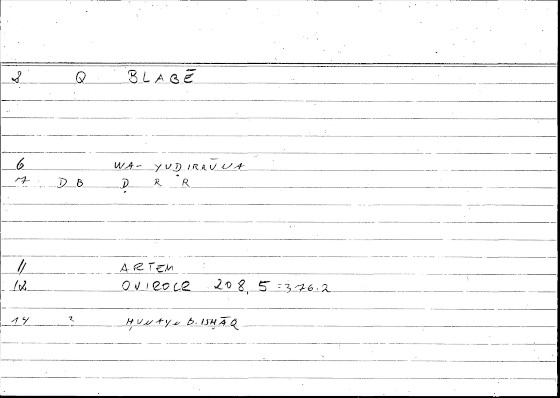 8 Q BLABĒ
6 WA- YUḌIRRŪNA
7 DB Ḍ R R
11 ARTEM
12 OVIROCR 208, 5 = 376.2
14 ? ḤUNAYN B. ISḤĀQ